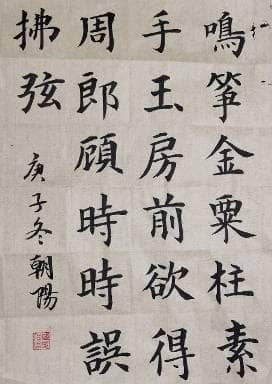 鳴筝金粟柱素
手玉房前欲得
周郎顧時時誤
拂弦
庚子冬朝陽